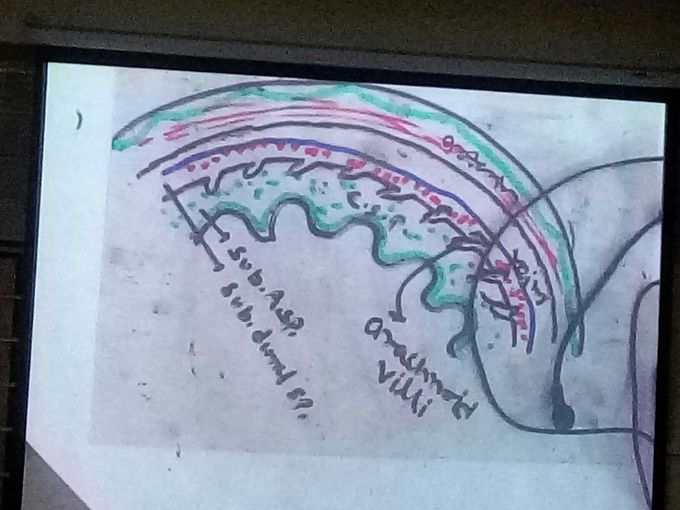 C.S.F
Sub. A.SP.
Sub. dural SP.
arachnoid
villi